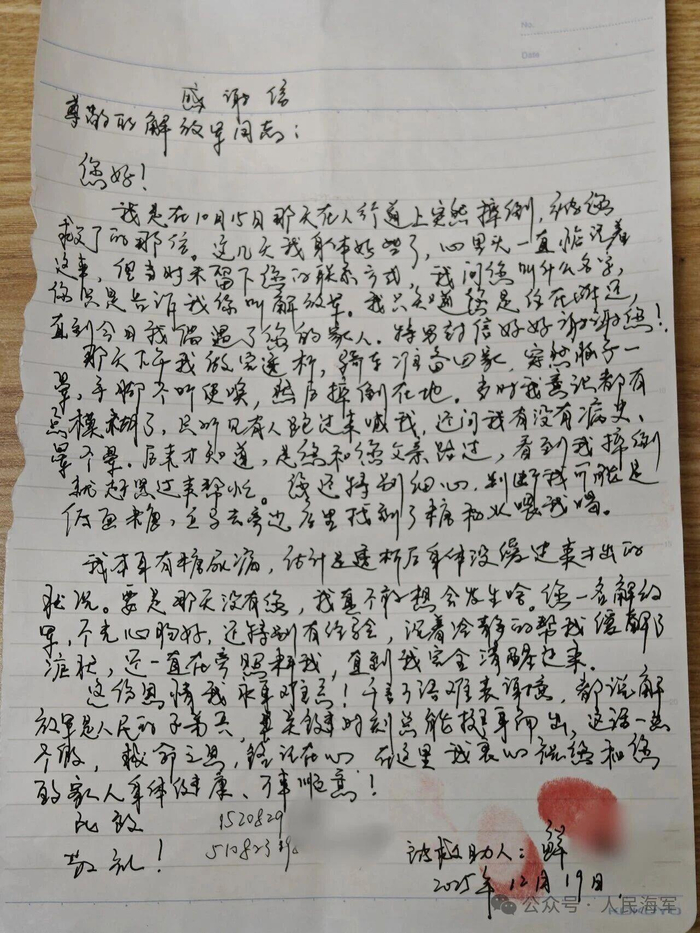 No:
Date
感谢信
尊敬的解放军同志：
您好！
我是在10月15日那天在人行道上突然摔倒，被您
救了的那位。这几天我身体好些了，心里头一直惦记着
这事，但当时未留下您的联系方式，我问您叫什么名字，
您只是告诉我你叫解放军。我只知道您是住在附近，
直到今日我偶遇了您的家人。特写封信好好谢谢您！
那天下午我做完透析，骑车准备回家，突然脑子一
晕，手脚不听使唤，然后摔倒在地。当时我意识都有
点模糊了，只听见有人跑过来喊我，还问我有没有病史、
晕不晕。后来才知道，是您和您父亲路过，看到我摔倒
就赶忙过来帮忙。您还特别细心，判断我可能是
低血糖，立马去旁边店里找到了糖和水喂我喝。
我本身有糖尿病，估计是透析后身体没缓过来才出的
状况。要是那天没有您，我真不敢想会发生啥。您一名解放
军，不光心肠好，还特别有经验，沉着冷静的帮我缓解了
症状，还一直在旁照料我，直到我完全清醒过来。
这份恩情我永身难忘！千言万语难表谢意，都说解
放军是人民的子弟兵，危难时刻总能挺身而出，这话一点
不假，救命之恩，铭记在心，在这里我衷心祝您和您
的家人身体健康、万事顺意！
此致 1520829
敬礼！ 510823196
被救助人：鲜
2025年12月19日
公众号·人民海军